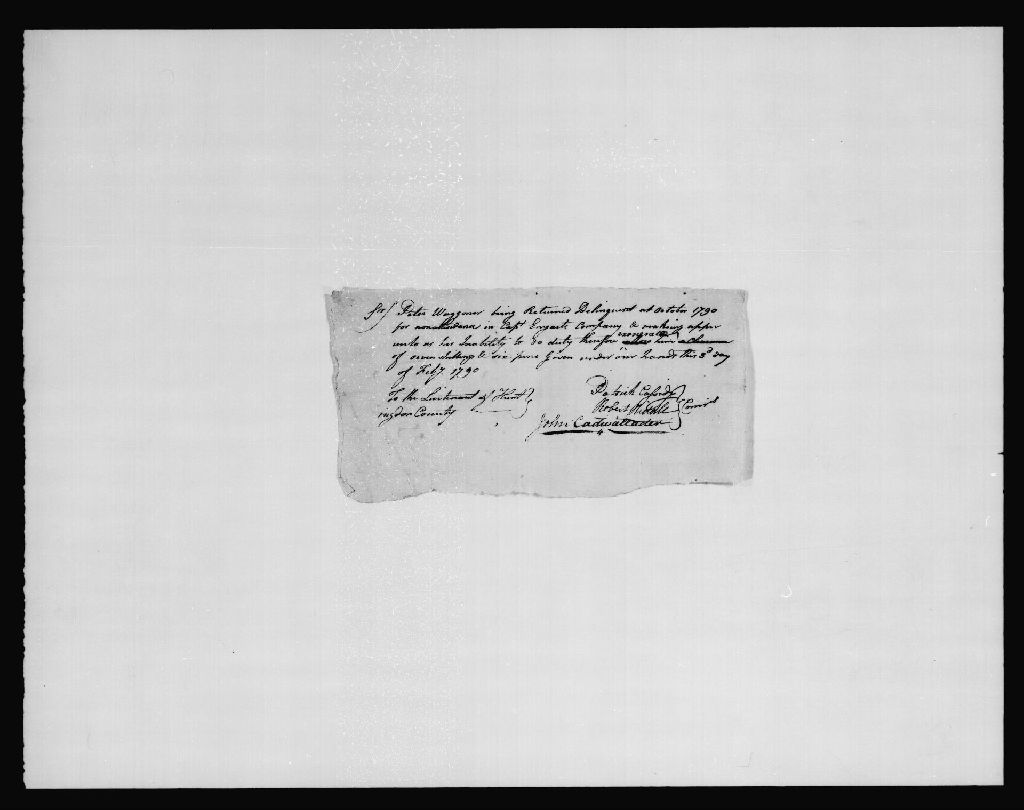 Sir/ Peter Waggoner being Returned Delinquent at October 1790
for nonattendance in Capt Enyarts Company & making appear
unto us his Inability to do duty therefore exonerate
of seven shillings & six pence Given under our hands this 3d day
of Feby 1790
To the Lieutenant of Hunt
ingdon County
Patrick Casidy
Robert Riddle
John Cadwallader